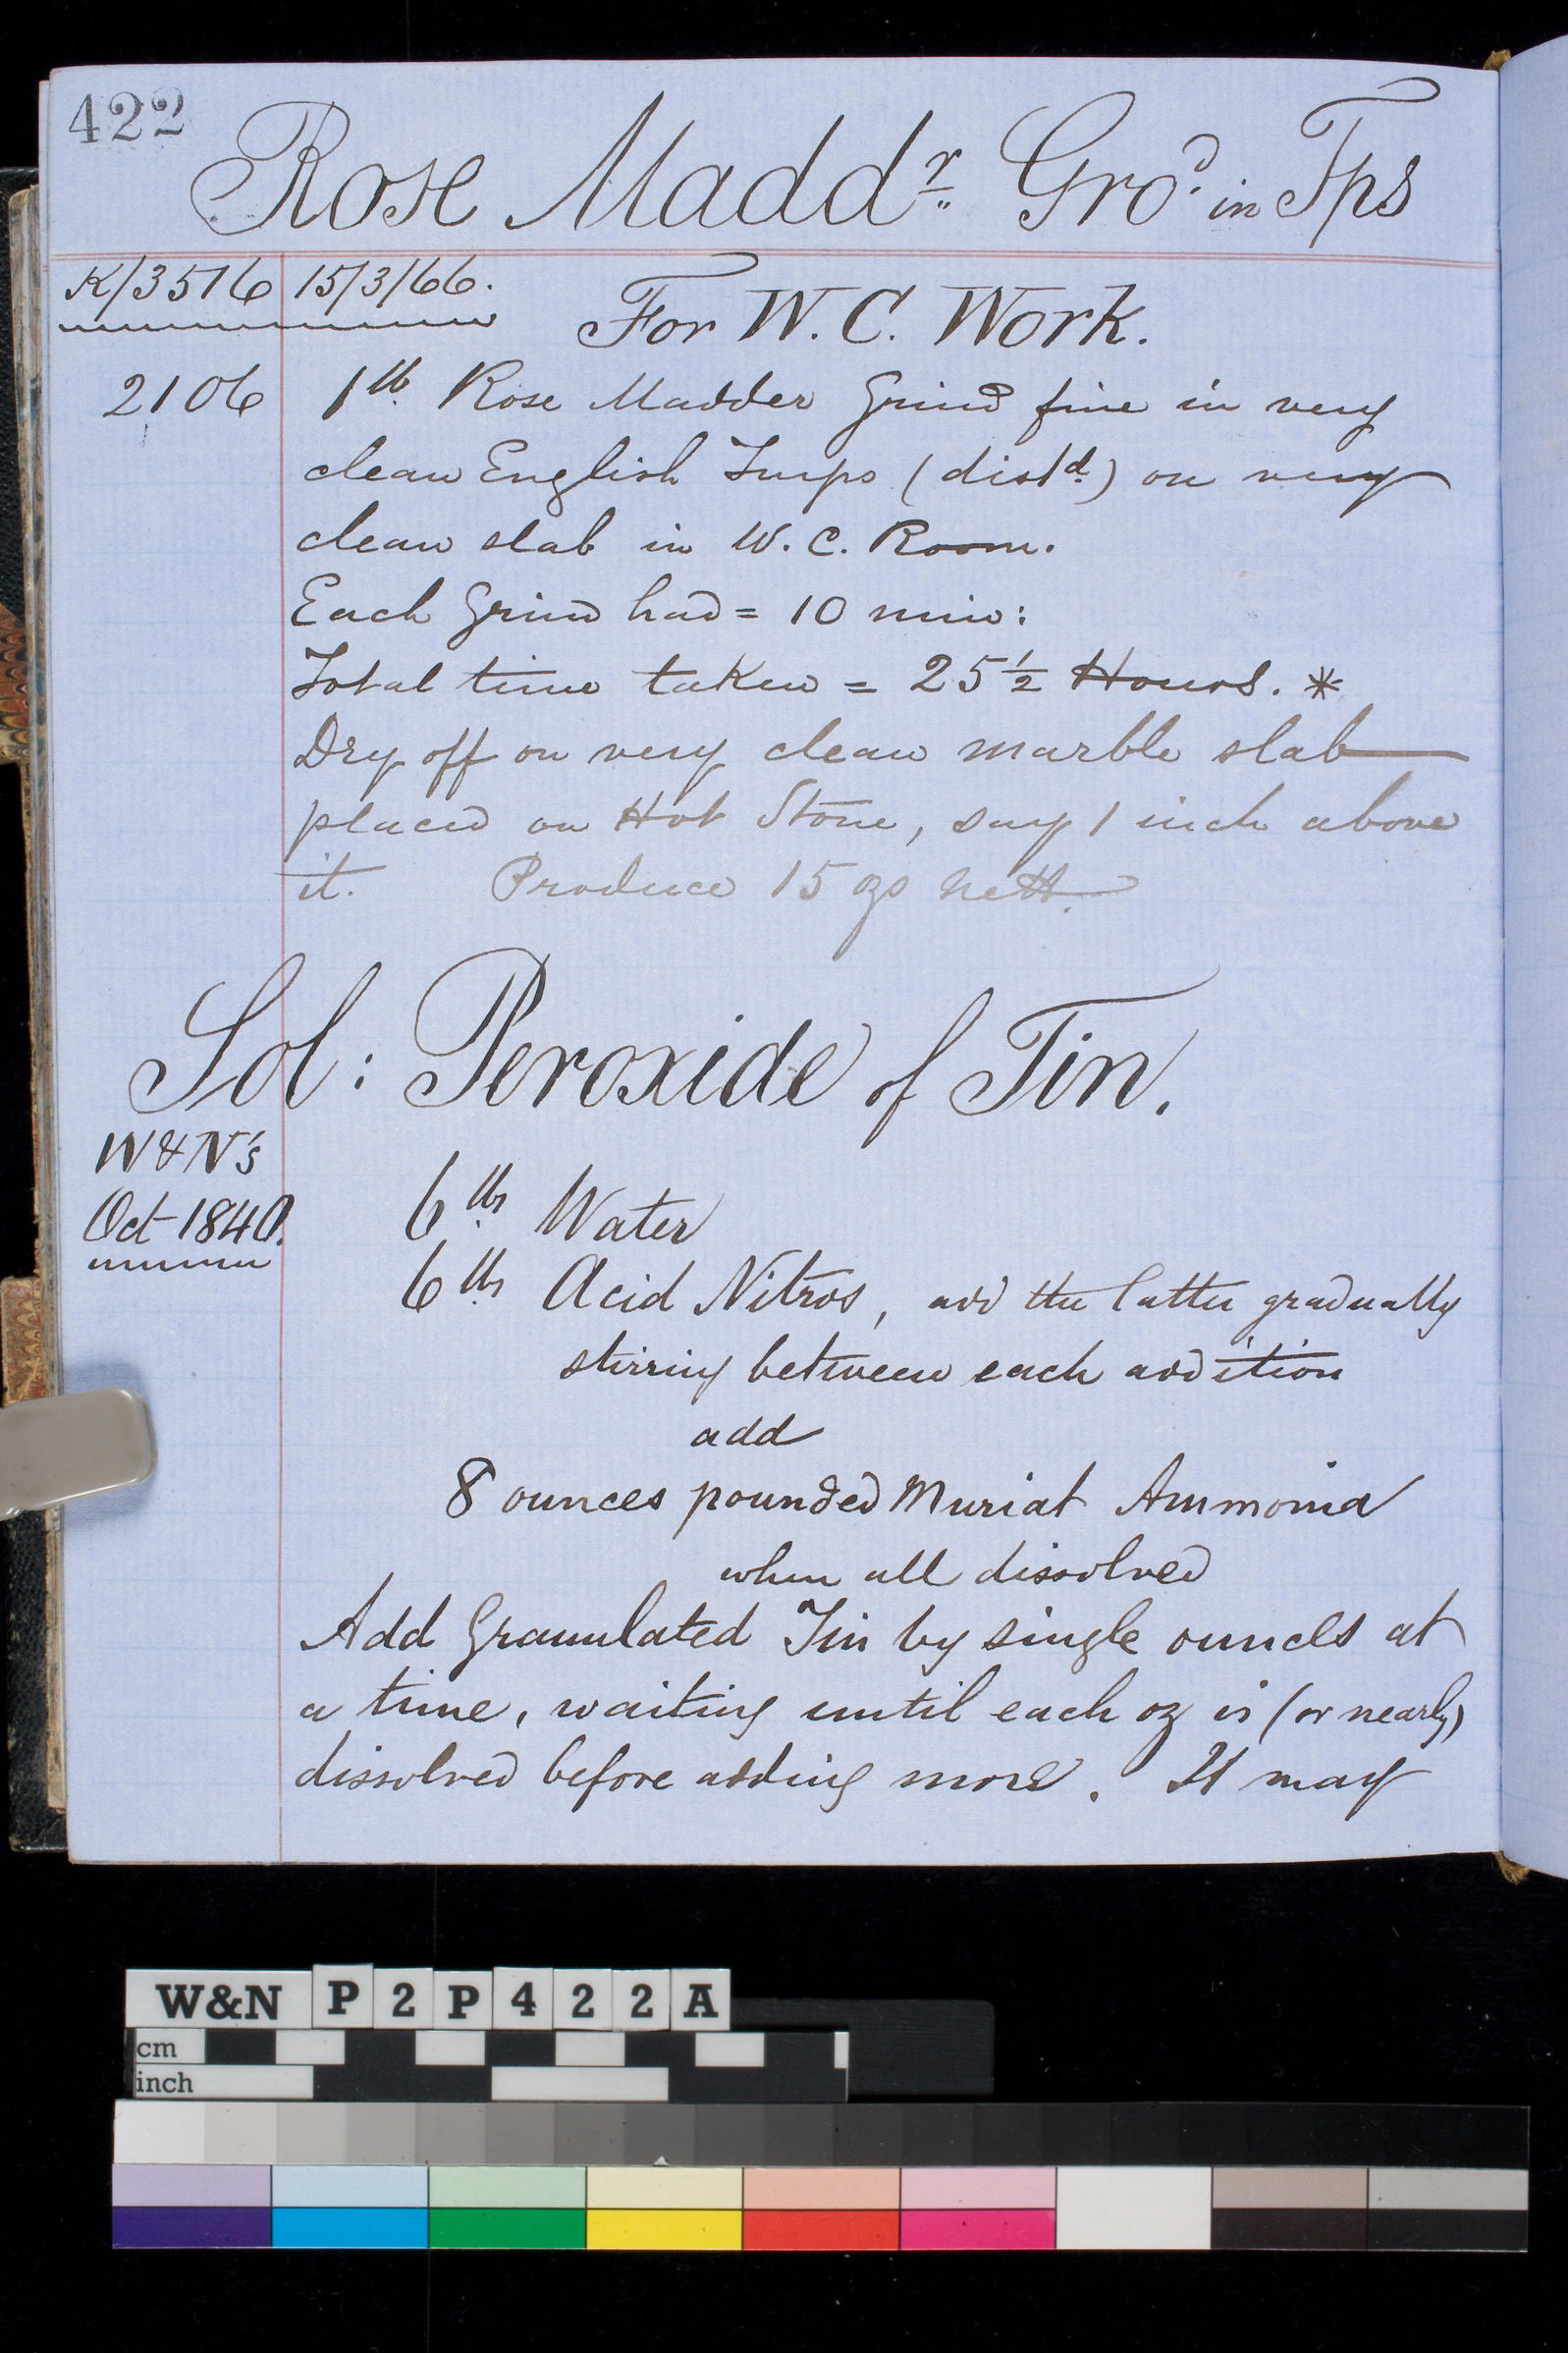 422
Rose Maddr. Gro.d in Tps
K/3516 15/3/66.
For W. C. Work.
2106 1lb. Rose Madder Grind fine in very
clean English Turps (distd.) on very
clean slab in W. C. Room.
Each Grind had = 10 min:
Total time taken = 25 1/2 Hours. *
Dry off on very clean marble slab
placed on Hot Stone, say 1 inch above
it. Produce 15 ozs nett.
Sol: Peroxide of Tin.
W&N's
Oct 1840.
6 lbs. Water
6 lbs. Acid Nitros, add the latter gradually
stirring between each addition
add
8 ounces pounded Muriat Ammonia
when all dissolved
Add Granulated Tin by single ounces at
a time, waiting until each oz is (or nearly)
dissolved before adding more. It may
W&N P2P422A
cm
inch